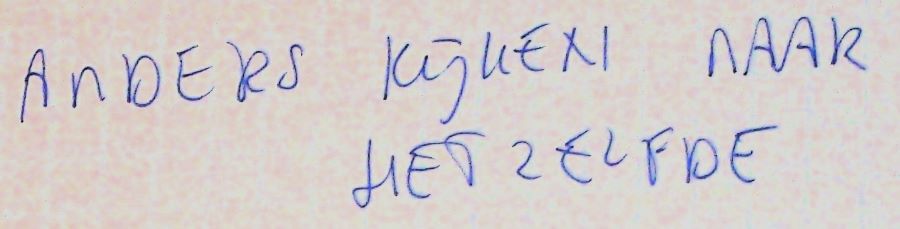 ANDERS KIJKEN NAAR
HETZELFDE